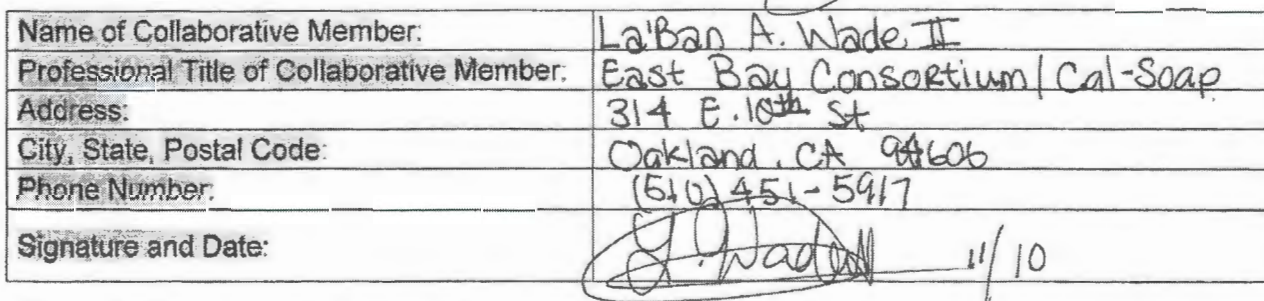 Name of Collaborative Member: La'Ban A. Wade II
Professional Title of Collaborative Member: East Bay Consortium/Cal-Soap
Address: 314 E. 10th St
City, State, Postal Code: Oakland, CA 94606
Phone Number: (510) 451-5917
Signature and Date: Wade II 11/10